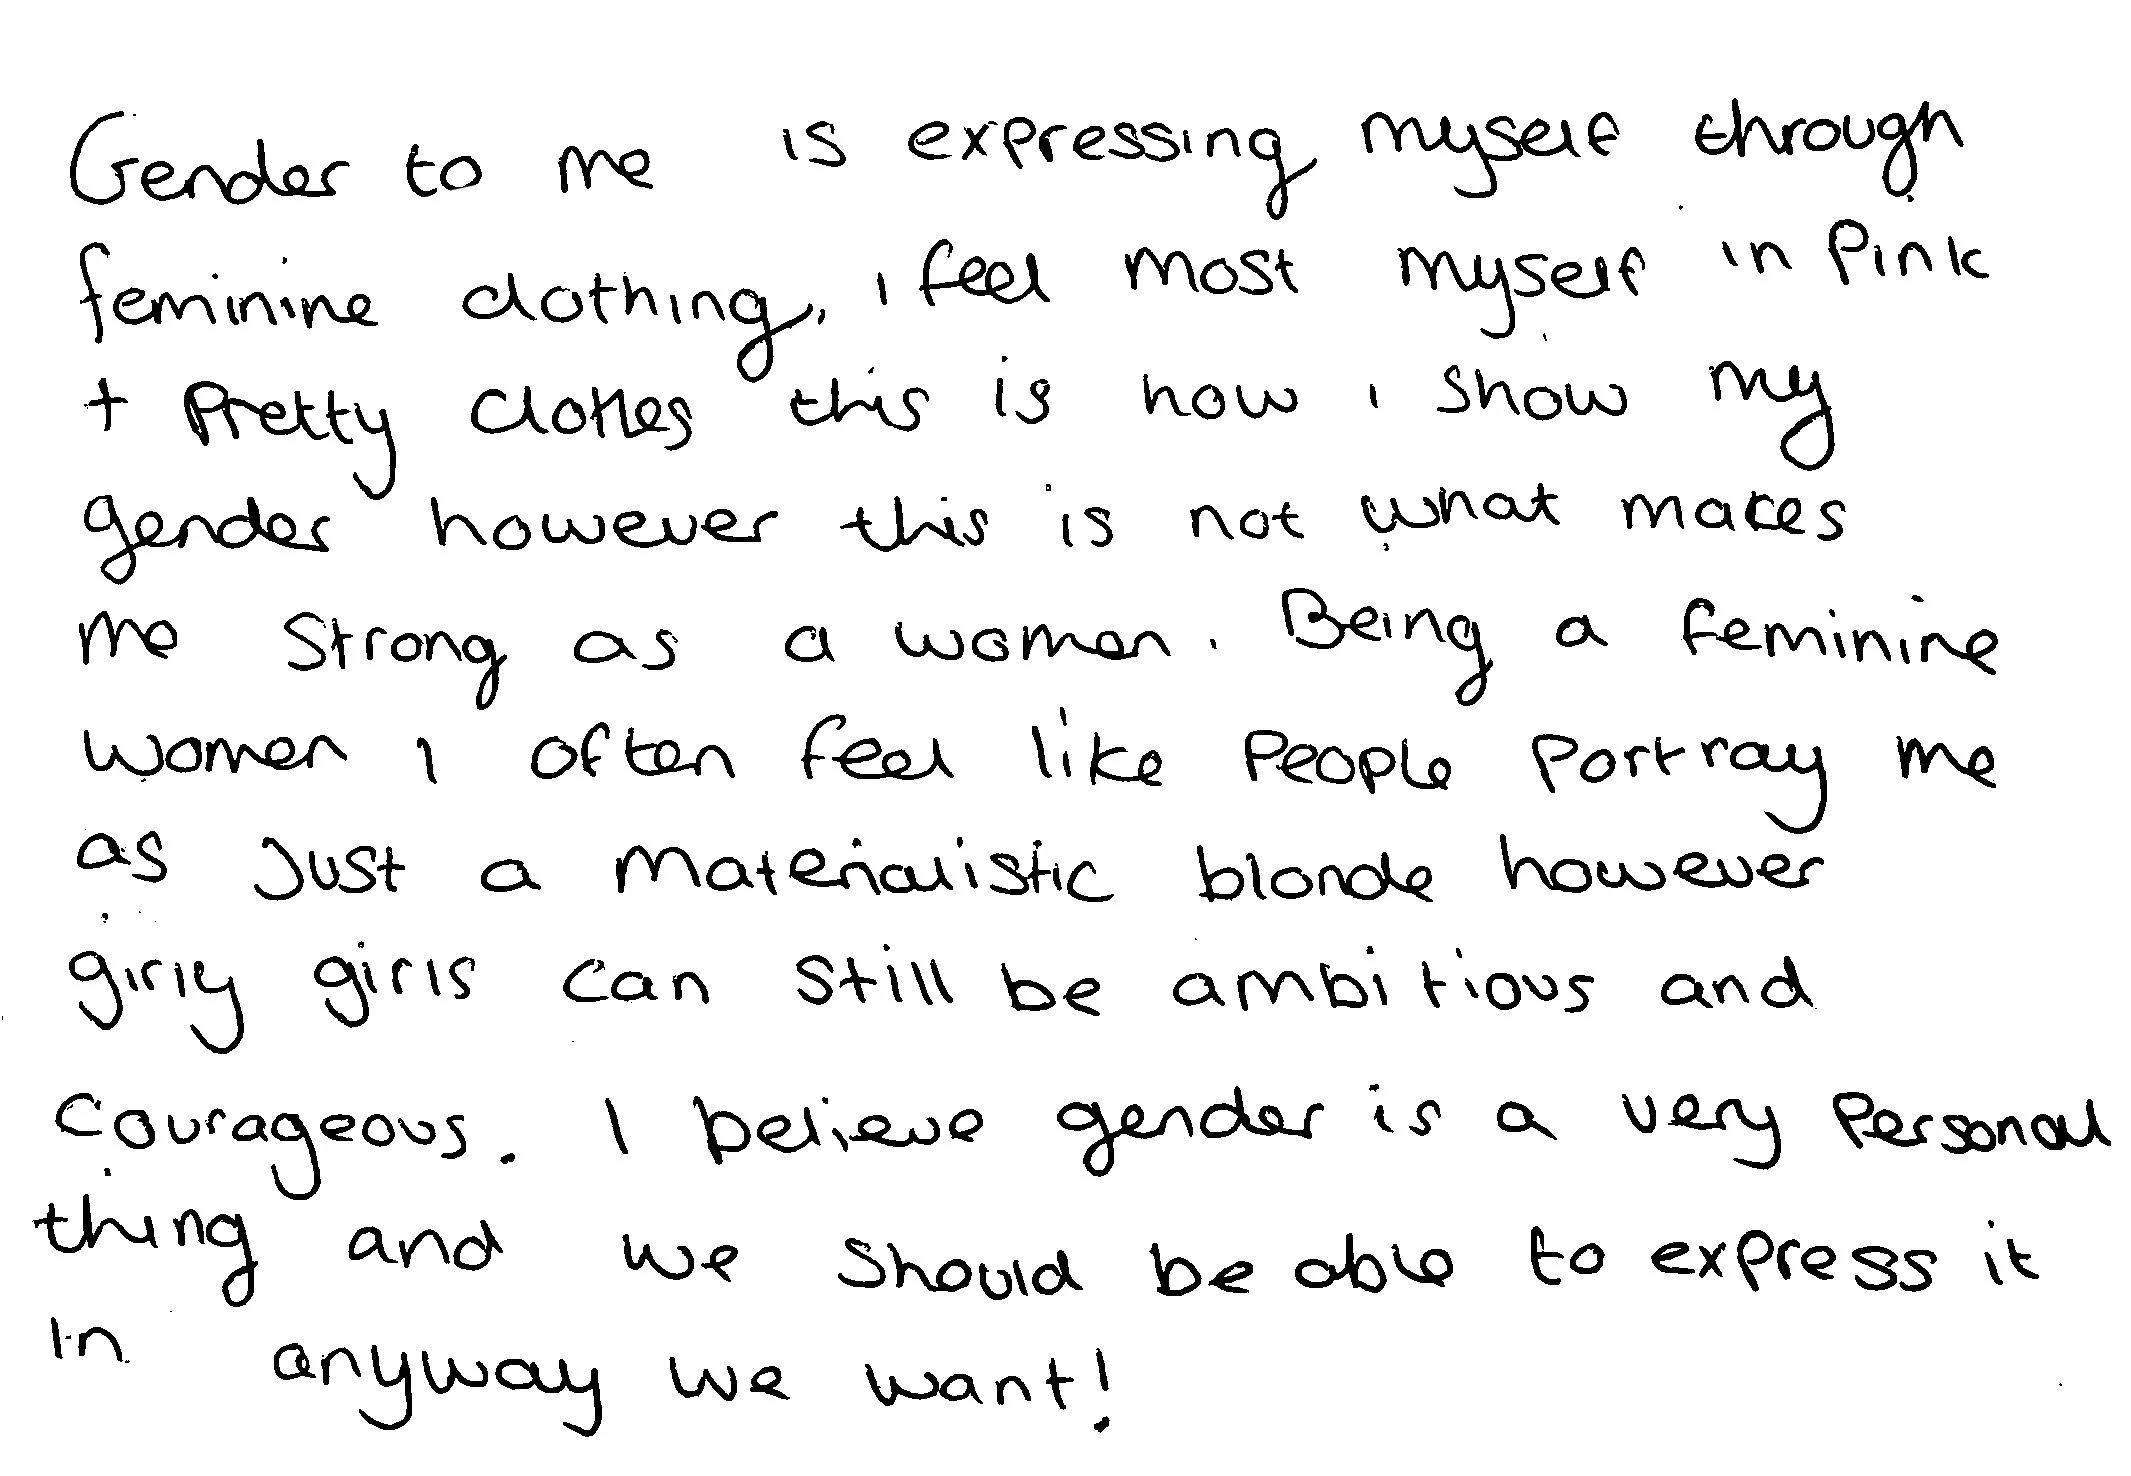 Gender to me is expressing myself through
feminine clothing, i feel most myself in Pink
+ Pretty clothes this is how i show my
gender however this is not what makes
me strong as a women. Being a feminine
women I often feel like people portray me
as just a materialistic blonde however
girly girls can still be ambitious and
courageous. I believe gender is a very personal
thing and we should be able to express it
in anyway we want!